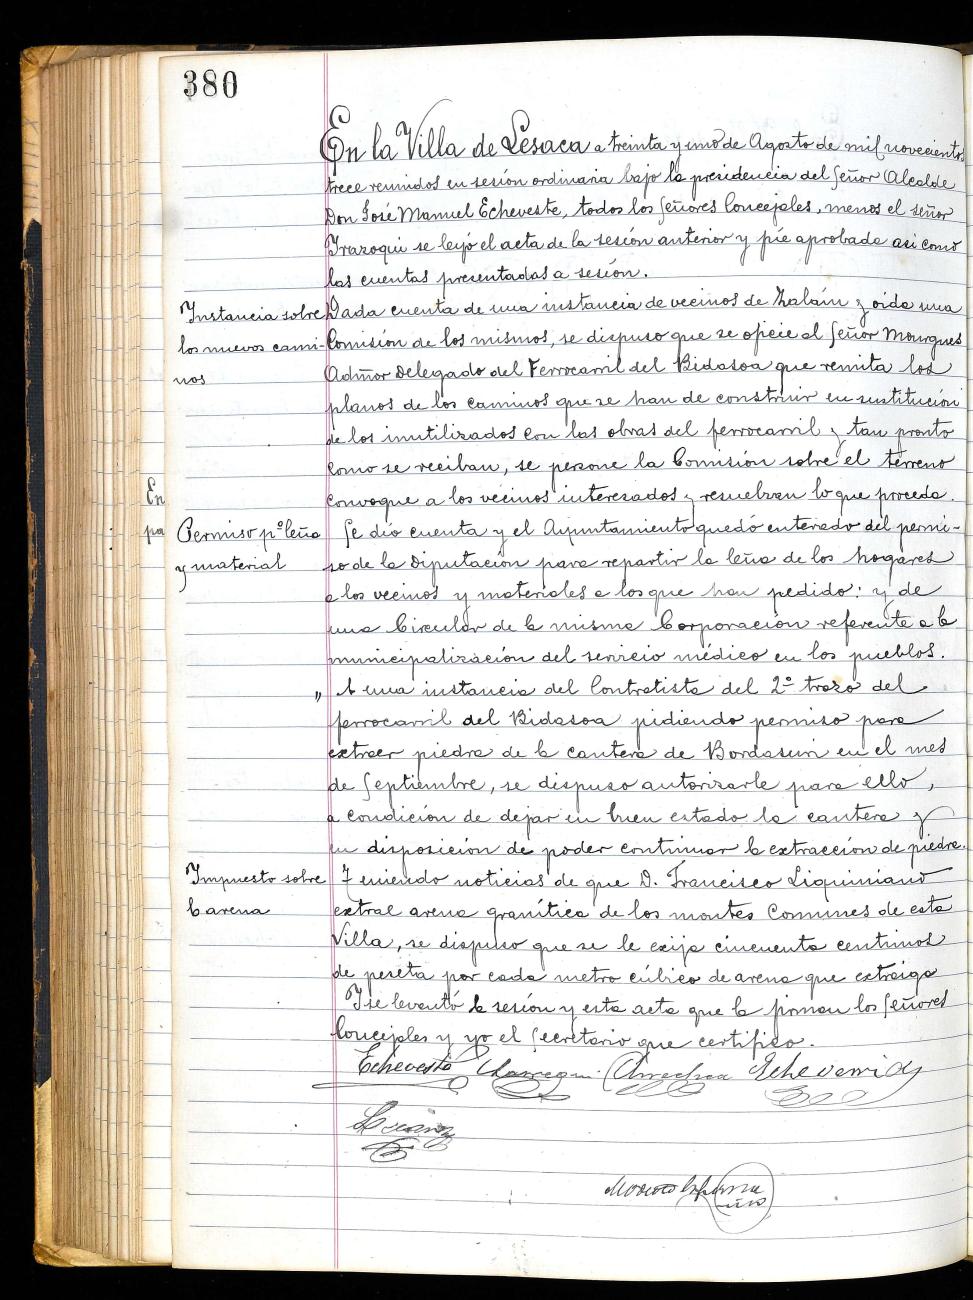 380
En la Villa de Lesaca a treinta y uno de Agosto de mil novecientos
trece reunidos en sesión ordinaria bajo la presidencia del Señor Alcalde
Don José Manuel Echeveste, todos los Señores Concejales, menos el señor
Irazoqui se leyó el acta de la sesión anterior y fié aprobada asi como
las cuentas presentadas a sesión.
Instancia sobre
los nuevos cami-
nos
Dada cuenta de una instancia de vecinos de Zalaín y oida una
Comisión de los mismos, se dispuso que se oficie al Señor Mourgues
Admor Delegado del Ferrocarril del Bidasoa que remita los
planos de los caminos que se han de construir en sustitución
de los inutilizados con las obras del ferrocarril y tan pronto
como se reciban, se persone la Comisión sobre el terreno
convoque a los vecinos interesados y resuelvan lo que proceda.
En
pa
Permiso pª leña
y material
Se dio cuenta y el Ayuntamiento quedó enterado del permi-
so de la Diputación para repartir la leña de los hogares
a los vecinos y materiales a los que han pedido: y de
una Circular de la misma Corporación referente a la
municipalización del servicio médico en los pueblos.
" A una instancia del Contratista del 2º trozo del
ferrocarril del Bidasoa pidiendo permiso para
extraer piedra de la cantera de en el mes
de Septiembre, se dispuso autorizarle para ello,
a condición de dejar en buen estado la cantera y
en disposición de poder continuar la extracción de piedra.
Impuesto sobre
la arena
Teniendo noticias de que D. Francisco Liquiniano
extrae arena granítica de los montes comunes de esta
Villa, se dispuso que se le exija cincuenta centimos
de peseta por cada metro cúbico de arena que extraiga
Y se levantó la sesión y esta acta que la firman los Señores
Concejales y yo el Secretario que certifico.
Echeveste Echeverria